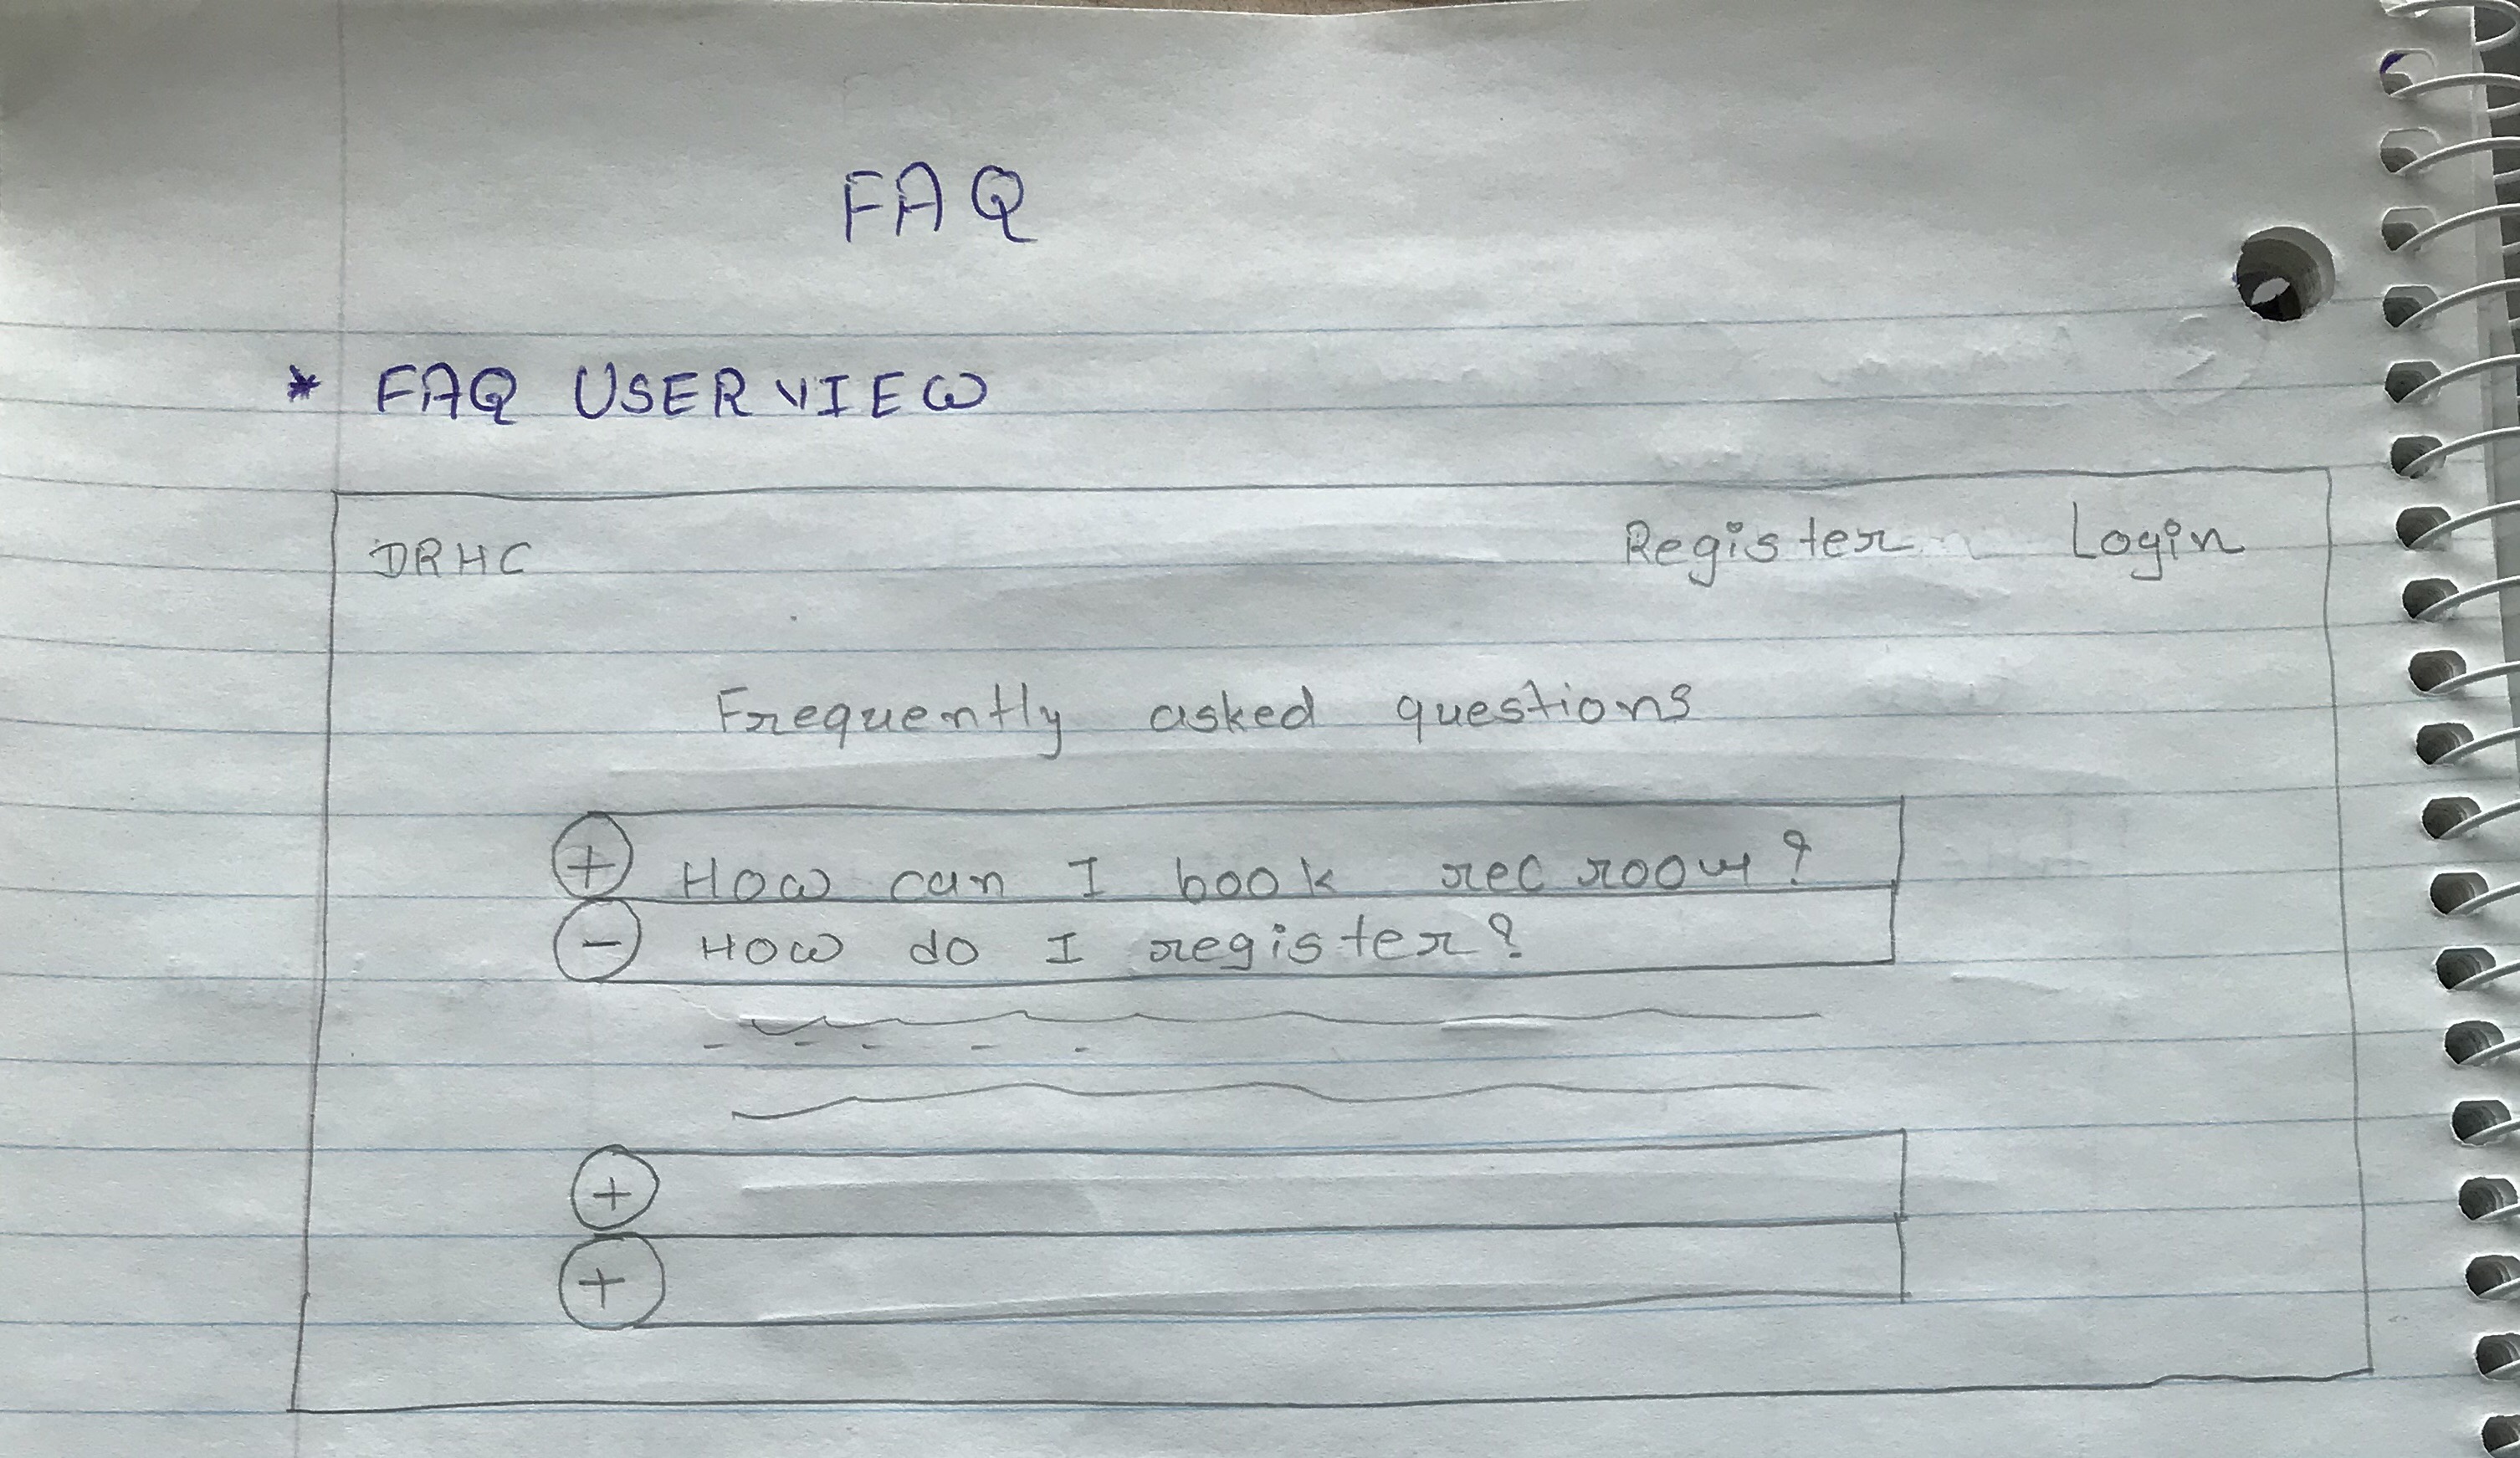 FAQ
* FAQ USER VIEW
DRHC Register Login
Frequently asked questions
+ How can I book rec room?
- How do I register?
+
+